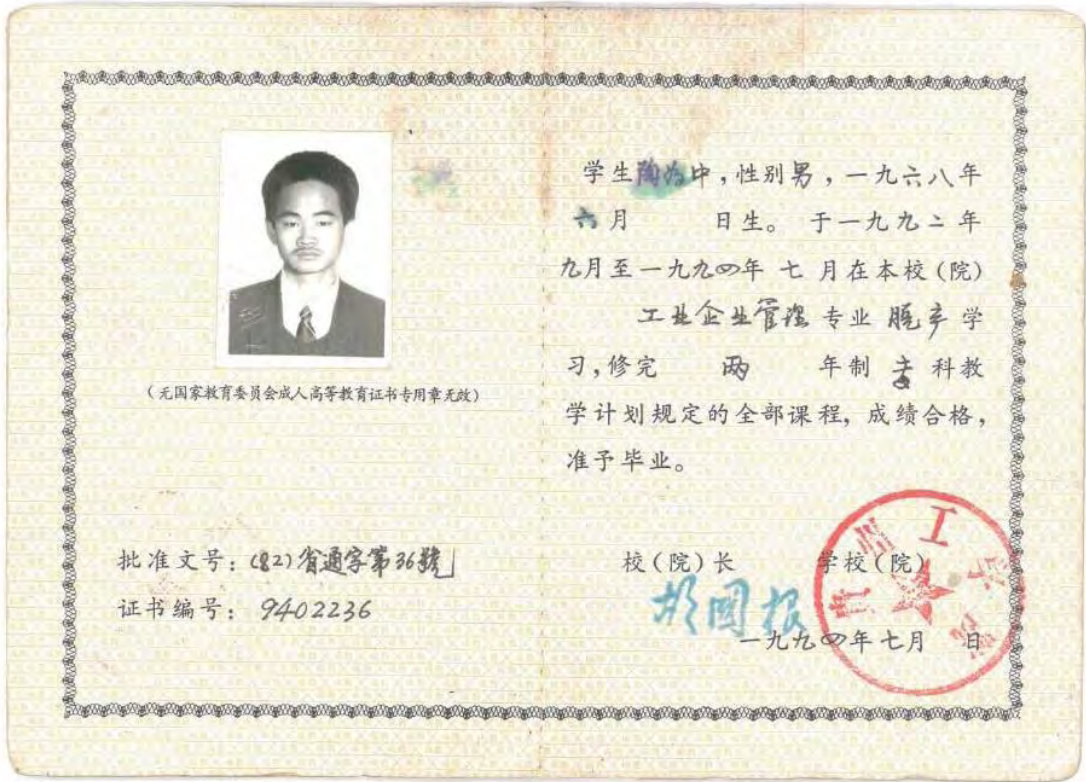 (无国家教育委员会成人高等教育证书专用章无效)
批准文号：(82)省通字第36號
证书编号：9402236
学生陶为中，性别男，一九六八年
六月 日生。于一九九二年
九月至一九九四年七月在本校(院)
工业企业管理专业脱产学
习，修完 两 年制专科教
学计划规定的全部课程，成绩合格，
准予毕业。
校(院)长 学校(院)
胡國根
一九九四年七月 日
工学院